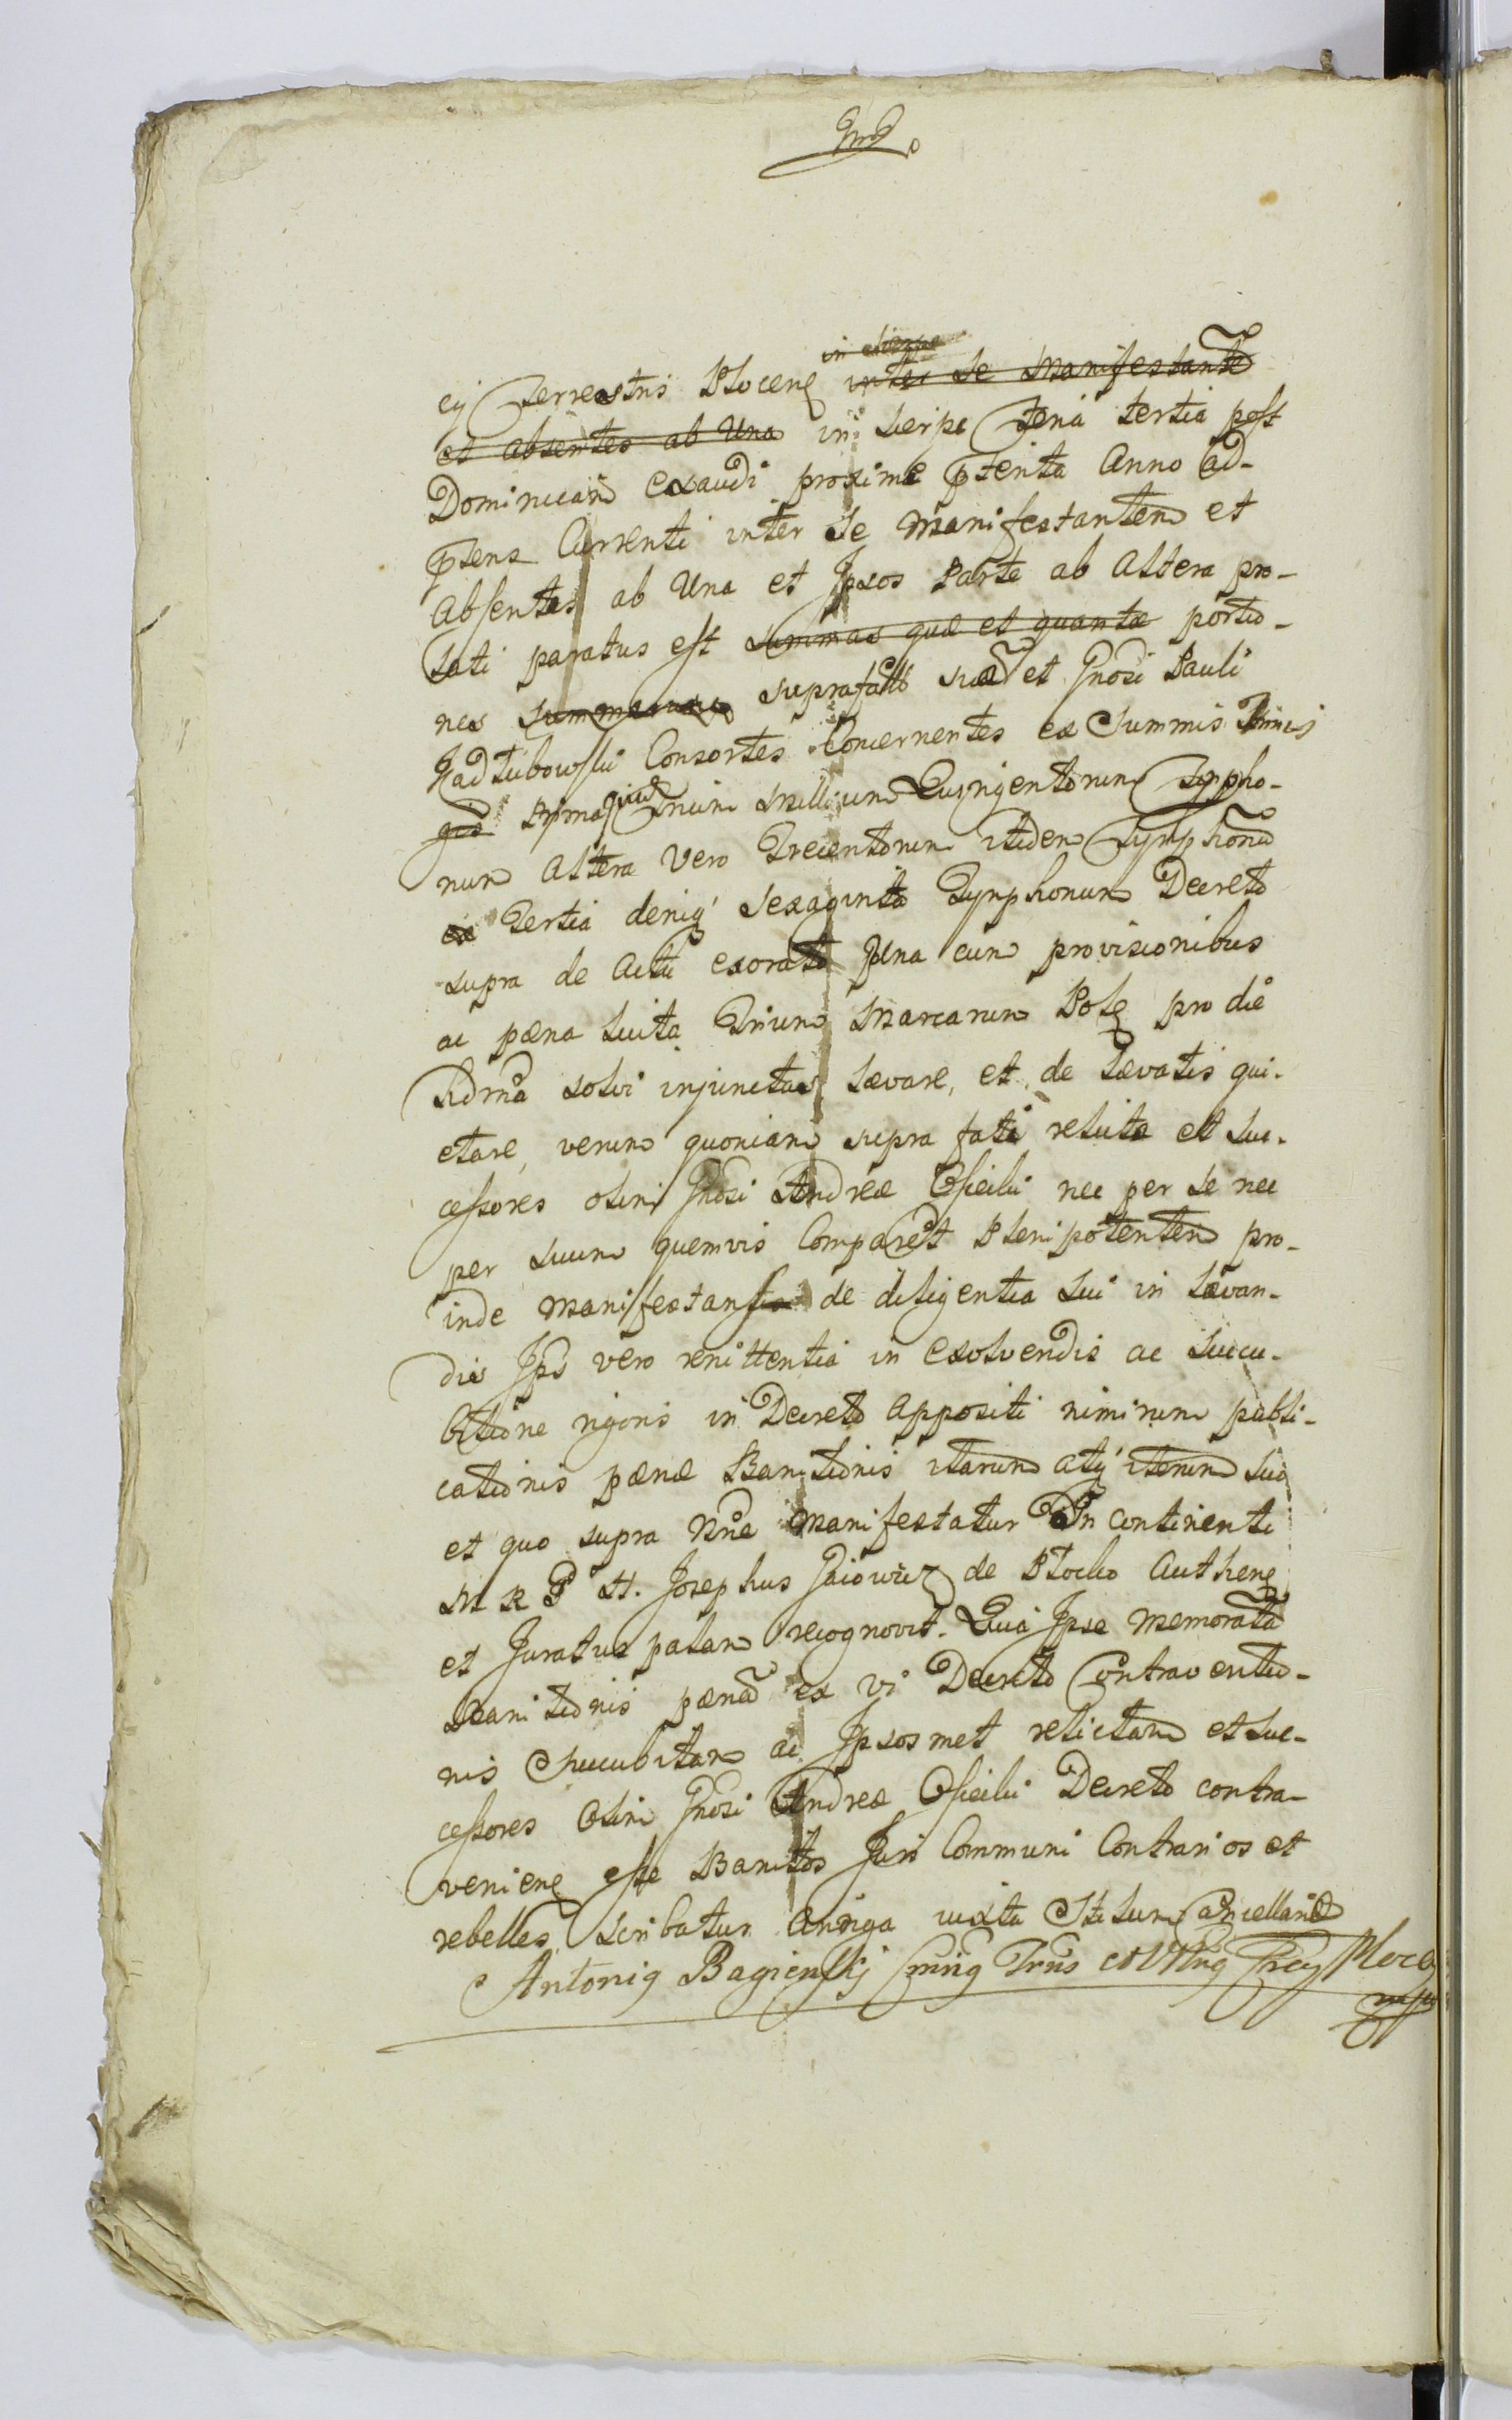 cij Terrestris Plocen in Sierpc inter se Manifestante
et absentes ab Una in Sierpc Feria tertia post
Dominicam Exaudi proxime pterita Anno ad
ptens Currenti inter se Manifestantem et
Absentes ab Una et Ipsos Parte ab Altera pro-
lati paratus est summas quæ et quanta portio-
nes summarum suprafatto suæ et Gnosi Pauli
Nadtubowski Consortes Concernentes ex Summis
Prima quid Trium Millium Quingentorum Typpho-
num Altera Vero Trecentorum itidem Tymphonũ
ex Tertia deniq' sexaginta Tymphonum Decreto
supra de Actu exorato Una cum provisionibus
ac pæna luita Trium Marcarum Pol pro die
hdrna solvi injunctas Lævare, et de Lævatis qui-
etare, verum quoniam supra fati relicta et Suc-
cessores olim Gnosi Andreæ Osiecki nec per se nec
per suum quemvis Comparet Plenipotentem pro-
inde Manifestans de diligentia sui in Lævan-
dis Ips vero renittentia in Exolvendis ac succu-
bitione rigoris in Decreto appositi nimirum publi-
cationis pænæ Banitionis iterum atq' iterum suo
et quo supra Nne Manifestatur In continenti
M R P H. Josephus Gaiowicz de Plocko Authen
et Juratus palam recognovit. Quia Ipse Memoratã
Banitionis pænã ex vi Decreto Contraventio-
nis succubitam ac Ipsosmet relictam et Suc-
cessores Olim Gnosi Andreæ Osiecki Decreto contra-
venien esse Banitos Juri Communi Contrarios et
rebelles Scribatur Arenga iuxta Stilum Cancellariæ
Antonig Bagienskj